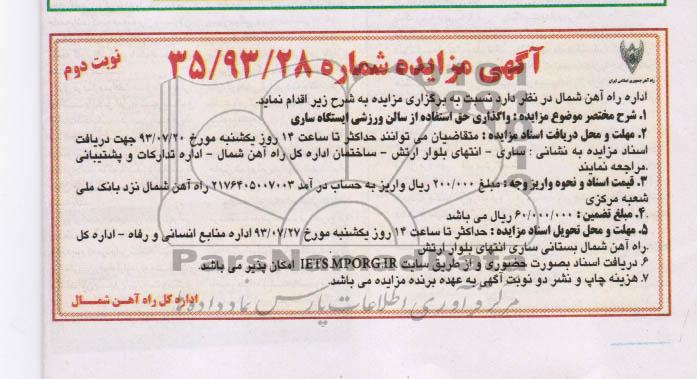 نوبت دوم
آگهی مزایده شماره ۳۵/۹۳/۲۸
راه آهن جمهوری اسلامی ایران
اداره راه آهن شمال در نظر دارد نسبت به برگزاری مزایده به شرح زیر اقدام نماید.
۱. شرح مختصر موضوع مزایده : واگذاری حق استفاده از سالن ورزشی ایستگاه ساری
۲. مهلت و محل دریافت اسناد مزایده : متقاضیان می توانند حداکثر تا ساعت ۱۴ روز یکشنبه مورخ ۹۳/۰۷/۲۰ جهت دریافت
اسناد مزایده به نشانی : ساری - انتهای بلوار ارتش - ساختمان اداره کل راه آهن شمال - اداره تدارکات و پشتیبانی
مراجعه نمایند.
۳. قیمت اسناد و نحوه واریز وجه : مبلغ ۲۰۰/۰۰۰ ریال واریز به حساب در آمد ۲۱۷۶۴۰۵۰۰۷۰۰۳ راه آهن شمال نزد بانک ملی
شعبه مرکزی
۴. مبلغ تضمین : ۶۰/۰۰۰/۰۰۰ ریال می باشد.
۵. مهلت و محل تحویل اسناد مزایده : حداکثر تا ساعت ۱۴ روز یکشنبه مورخ ۹۳/۰۷/۲۷ اداره منابع انسانی و رفاه - اداره کل
راه آهن شمال بستانی ساری انتهای بلوار ارتش.
۶. دریافت اسناد بصورت حضوری و از طریق سایت IETS.MPORG.IR امکان پذیر می باشد.
۷. هزینه چاپ و نشر دو نوبت آگهی به عهده برنده مزایده می باشد.
اداره کل راه آهن شمال
ParsNamadData
مرکز فرآوری اطلاعات پارس نماد داده ها